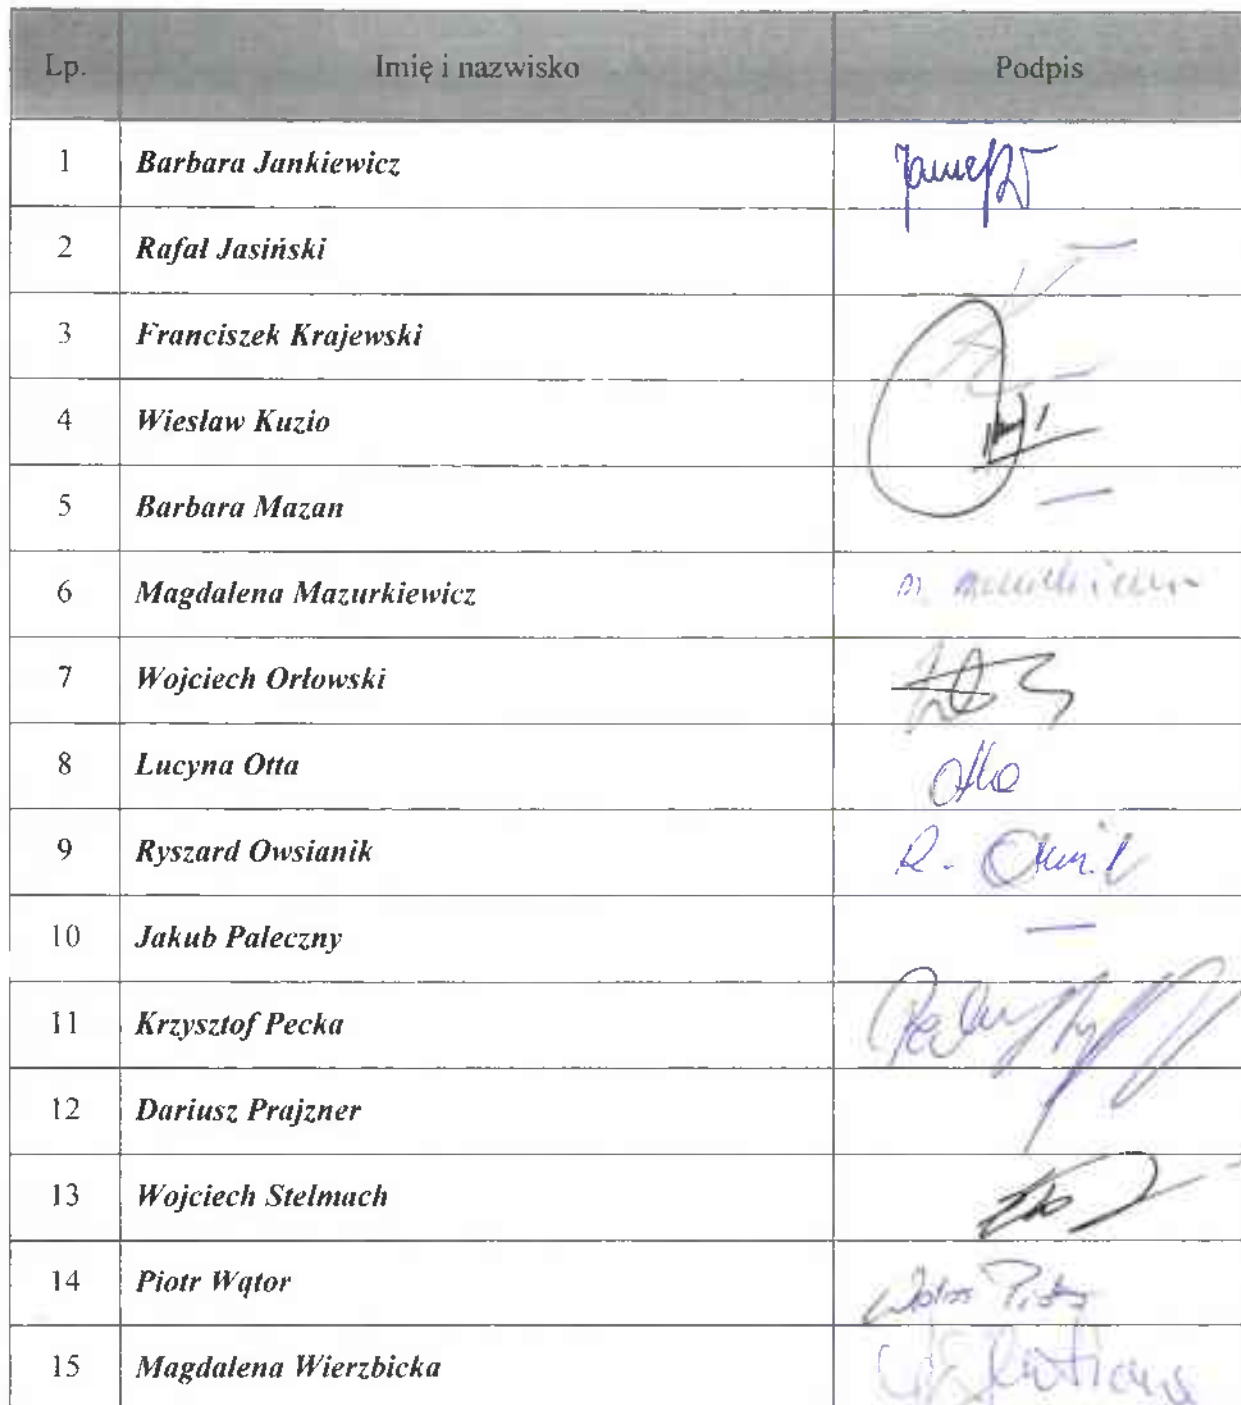 Lp. Imię i nazwisko Podpis
1 Barbara Jankiewicz
2 Rafał Jasiński —
3 Franciszek Krajewski
4 Wiesław Kuzio
5 Barbara Mazan —
6 Magdalena Mazurkiewicz
7 Wojciech Orłowski
8 Lucyna Otta Otta
9 Ryszard Owsianik
10 Jakub Paleczny —
11 Krzysztof Pecka
12 Dariusz Prajzner
13 Wojciech Stelmach
14 Piotr Wątor
15 Magdalena Wierzbicka